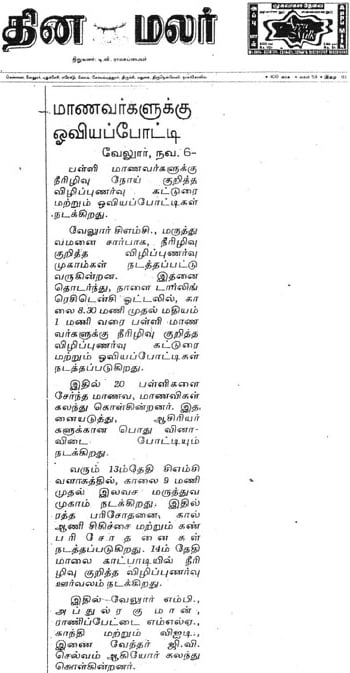 தின மலர்
நிறுவனர்: டி.வி. ராமசுப்பையர்
மாணவர்களுக்கு
ஓவியப்போட்டி
வேலூர், நவ. 6–
பள்ளி மாணவர்களுக்கு
நீரிழிவு நோய் குறித்த
விழிப்புணர்வு கட்டுரை
மற்றும் ஓவியப்போட்டிகள்
நடக்கிறது.
வேலூர் சிஎம்சி., மருத்து
வமனை சார்பாக, நீரிழிவு
குறித்த விழிப்புணர்வு
முகாம்கள் நடத்தப்பட்டு
வருகின்றன. இதனை
தொடர்ந்து, நாளை டார்லிங்
ரெசிடென்சி ஓட்டலில், கா
லை 8.30 மணி முதல் மதியம்
1 மணி வரை பள்ளி மாண
வர்களுக்கு நீரிழிவு குறித்த
விழிப்புணர்வு கட்டுரை
மற்றும் ஓவியப்போட்டிகள்
நடத்தப்படுகிறது.
இதில் 20 பள்ளிகளை
சேர்ந்த மாணவ, மாணவிகள்
கலந்து கொள்கின்றனர். இத
னையடுத்து, ஆசிரியர்
களுக்கான பொது வினா-
விடை போட்டியும்
நடக்கிறது.
வரும் 13ம்தேதி சிஎம்சி
வளாகத்தில், காலை 9 மணி
முதல் இலவச மருத்துவ
முகாம் நடக்கிறது. இதில்
ரத்த பரிசோதனை, கால்
ஆணி சிகிச்சை மற்றும் கண்
பரிசோதனைகள்
நடத்தப்படுகிறது. 14ம் தேதி
மாலை காட்பாடியில் நீரி
ழிவு குறித்த விழிப்புணர்வு
ஊர்வலம் நடக்கிறது.
இதில்–வேலூர் எம்பி.,
அப்துல்ரகுமான்,
ராணிப்பேட்டை எம்எல்ஏ.,
காந்தி மற்றும் விஐடி.,
இணை வேந்தர் ஜி.வி.
செல்வம் ஆகியோர் கலந்து
கொள்கின்றனர்.